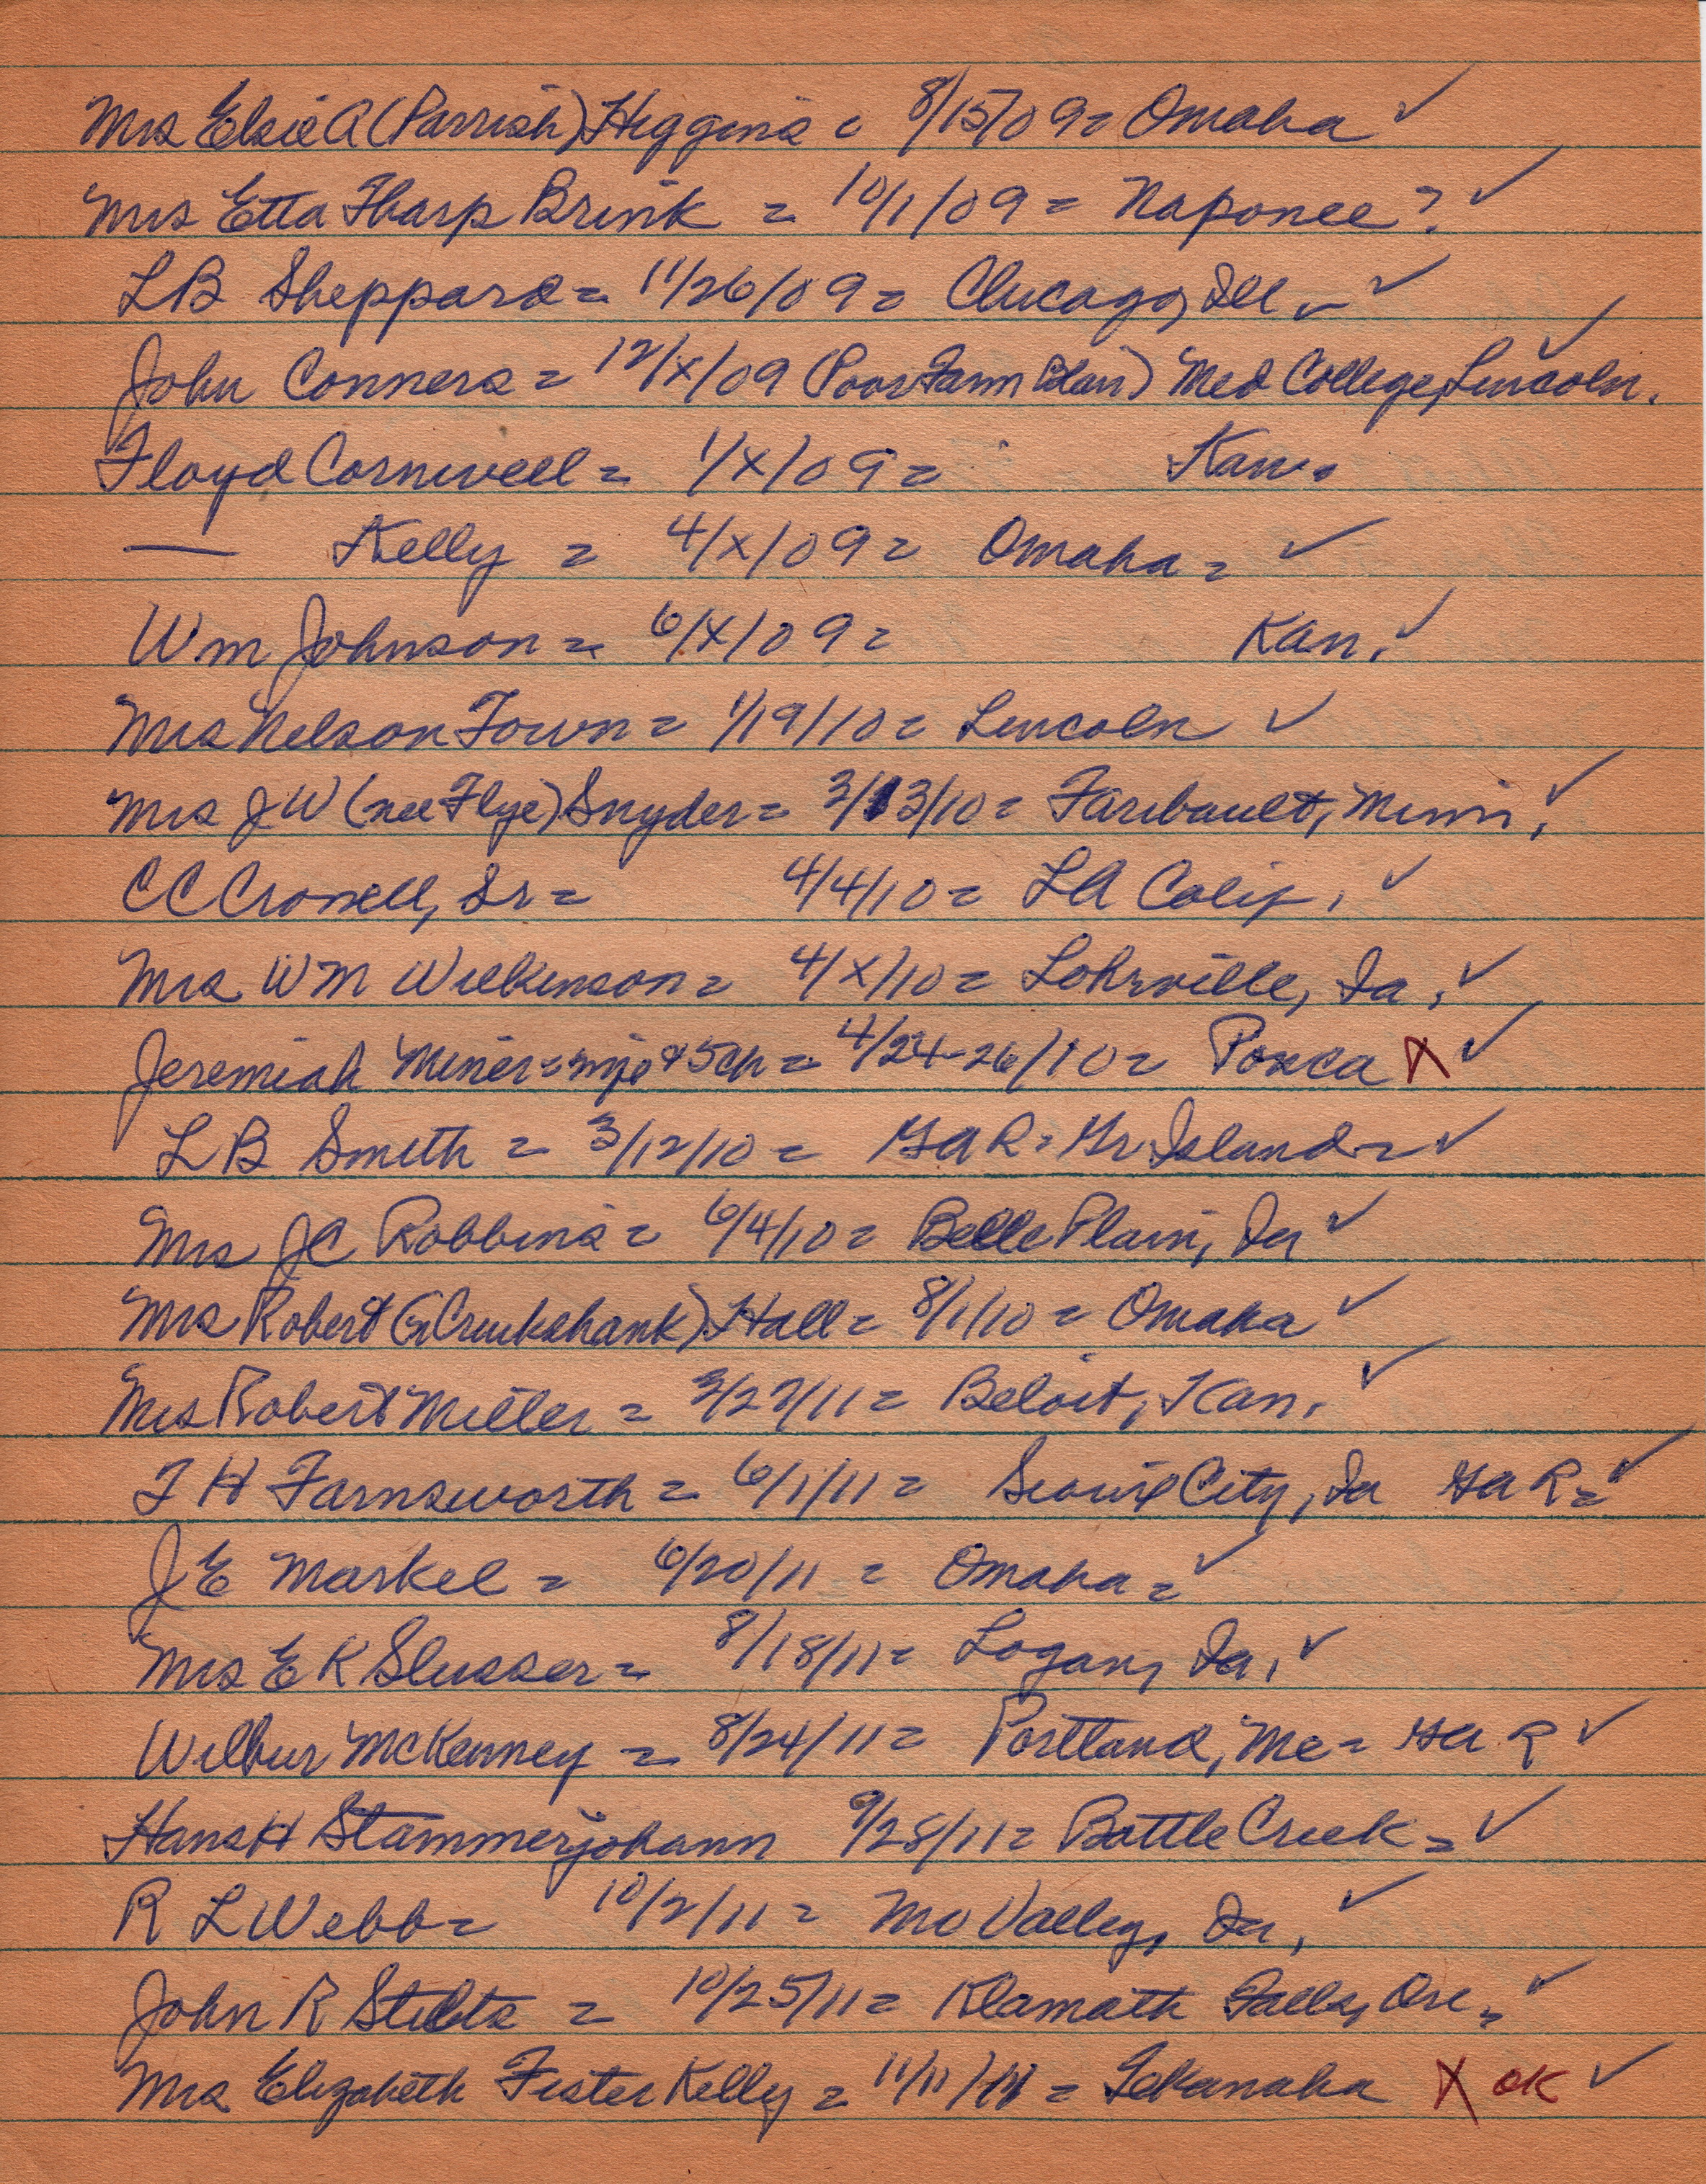 Mrs Elsie A (Parrish) Higgins = 8/15/09 = Omaha ✓
Mrs Etta Tharp Brink = 10/1/09 = Naponee ? ✓
L B Sheppard = 11/26/09 = Chicago, Ill ✓
John Conners = 12/x/09 (Poor Farm) Med College, Lincoln. ✓
Floyd Cornwell = 1/x/09 = Kan.
— Kelly = 4/x/09 = Omaha = ✓
Wm Johnson = 6/x/09 = Kan. ✓
Mrs Nelson Town = 1/19/10 = Lincoln ✓
Mrs J W (nee Flye) Snyder = 3/13/10 = Faribault, Minn. ✓
C C Crowell, Sr = 4/4/10 = LA Calif. ✓
Mrs WM Wilkinson = 4/x/10 = Lohrville, Ia. ✓
Jeremiah Miner = wife & 5 ch = 4/24-26/10 = Ponca X ✓
L B Smith = 3/12/10 = GAR = Gr Island = ✓
Mrs JC Robbins = 6/4/10 = Belle Plain, Ia ✓
Mrs Robert (Cruikshank) Hall = 8/1/10 = Omaha ✓
Mrs Robert Miller = 3/27/11 = Beloit, Kan. ✓
T H Farnsworth = 6/1/11 = Sioux City, Ia GAR = ✓
J E Markel = 6/20/11 = Omaha = ✓
Mrs E K Slusser = 8/18/11 = Logan, Ia. ✓
Wilbur McKenney = 8/24/11 = Portland, Me = GAR ✓
Hans H Stammerjohann 9/28/11 = Battle Creek = ✓
R L Webb = 10/2/11 = Mo Valley, Ia. ✓
John R Stilts = 10/25/11 = Klamath Falls, Ore. ✓
Mrs Elizabeth Fister Kelly = 11/11/11 = Tekamaha X OK ✓